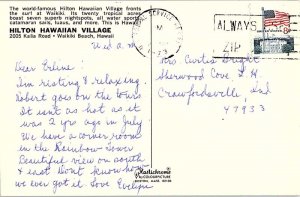 The world-famous Hilton Hawaiian Village fronts
the surf at Waikiki. Its twenty tropical acres
boast seven superb nightspots, all water sports,
catamaran sails, luaus, and more. This is Hawaii!
HILTON HAWAIIAN VILLAGE
2005 Kalia Road • Waikiki Beach, Hawaii
Wed A.M.
Dear Erline:
I'm resting & relaxing
Robert goes on the tours
It isnt as hot as it
was 2 yrs ago in July
We have a corner room
in the Rainbow Tower
Beautiful view on south
& east Dont know how
we ever got it. Love Evelyn
Plastichrome
POSTAL SERVICE
PM
1973
ALWAYS
ZIP
8c
Mrs Curtis Bright
Sherwood Cove
Crawfordsville Ind
47933